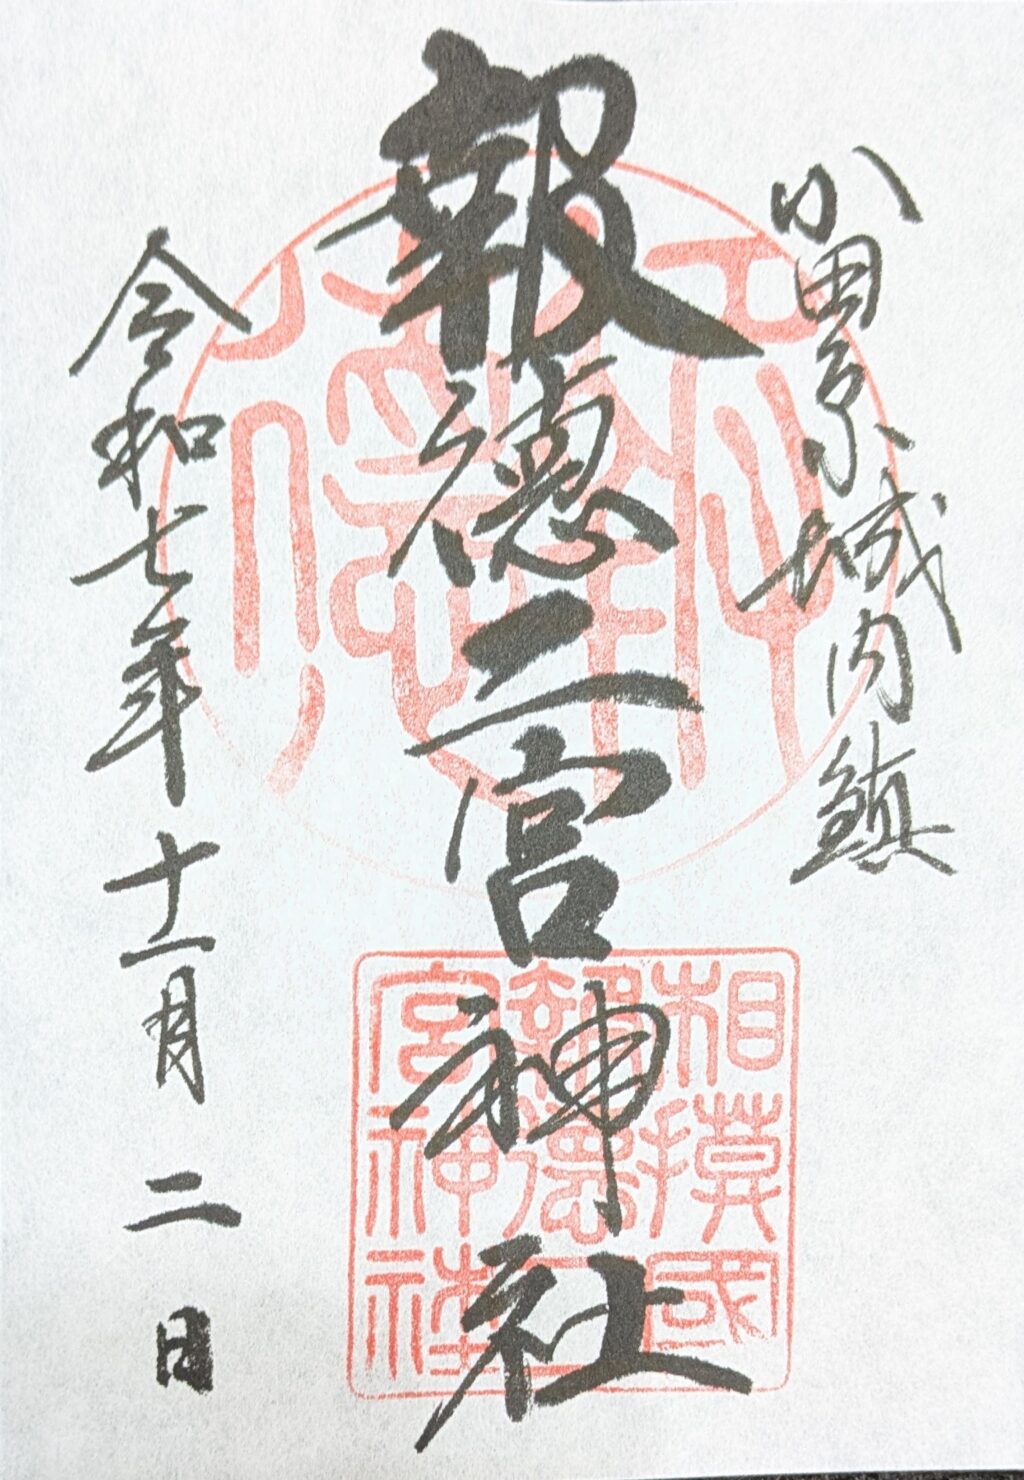 小田原城内鎮
報徳二宮神社
令和七年十一月二日
相摸國
報徳二
宮神社